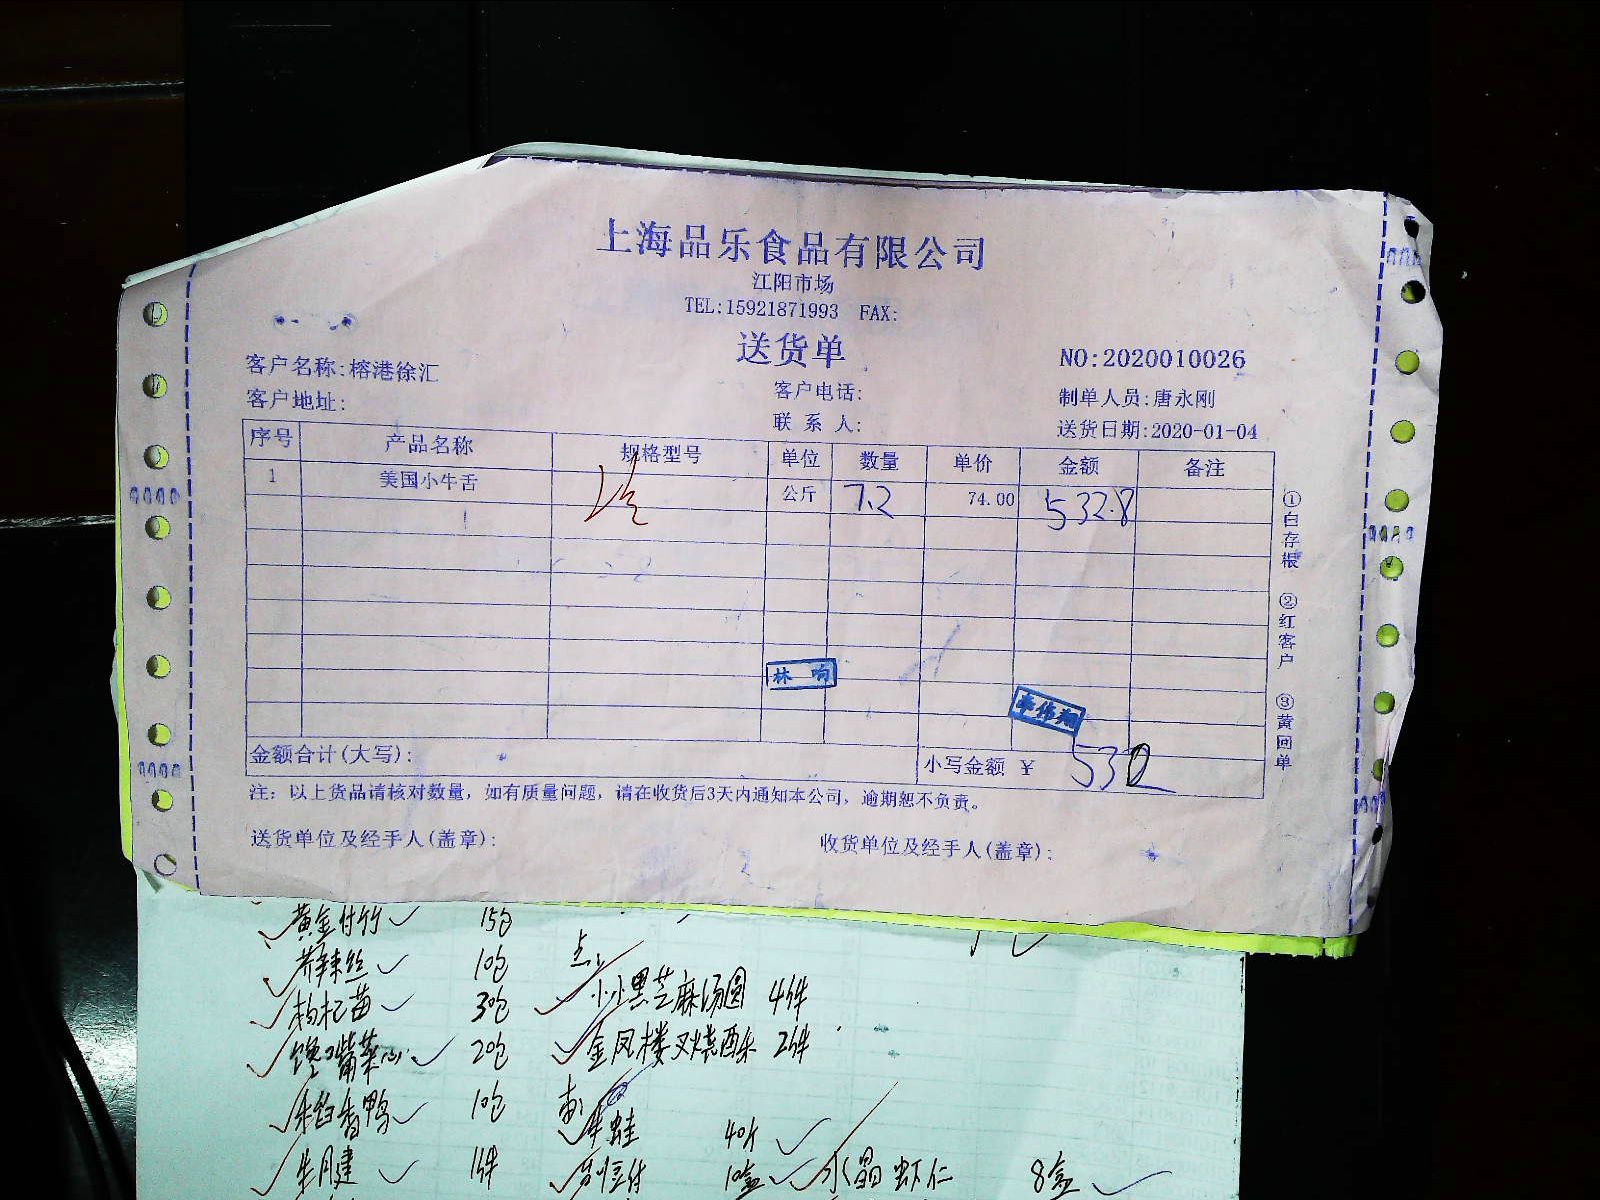 上海品乐食品有限公司
江阳市场
TEL:15921871993 FAX:
送货单
NO:2020010026
客户名称:榕港徐汇
客户电话:
制单人员:唐永刚
客户地址:
联系人:
送货日期:2020-01-04
序号 产品名称 规格型号 单位 数量 单价 金额 备注
1 美国小牛舌 公斤 7.2 74.00 532.8
①白存根 ②红客户 ③黄回单
林响
李伟翔
金额合计(大写): 小写金额 ¥ 532
注：以上货品请核对数量，如有质量问题，请在收货后3天内通知本公司，逾期恕不负责。
送货单位及经手人(盖章): 收货单位及经手人(盖章):
黄金付竹 15包
10包
枸杞苗 30包 小小黑芝麻汤圆 4件
馋嘴菜心 20包 金凤楼叉烧酥 2件
10包
牛蛙 40斤
1件 10盒 水晶虾仁 8盒